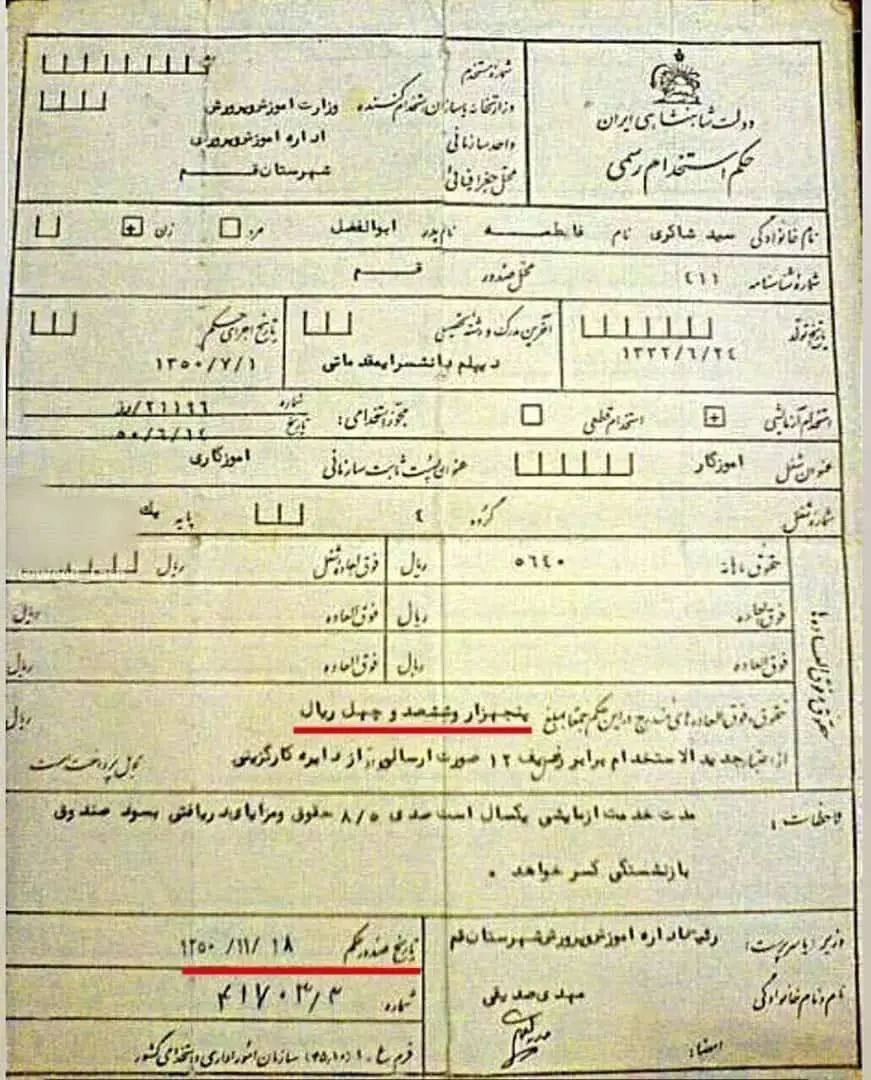 دولت شاهنشاهی ایران
حکم استخدام رسمی
شماره مستخدم
وزارتخانه یا سازمان استخدام کننده وزارت آموزش و پرورش
واحد سازمانی اداره آموزش و پرورش
محل جغرافیائی شهرستان قم
نام خانوادگی سید شاکری نام فاطمه نام پدر ابوالفضل مرد زن +
شماره شناسنامه ٤١١ محل صدور قم
تاریخ تولد ١٣٣٢/٦/٢٤
آخرین مدرک و رشته تحصیلی دیپلم دانشسرایمقدماتی
تاریخ اجرای حکم ١٣٥٠/٧/١
استخدام آزمایشی + استخدام قطعی مجوز استخدامی: شماره ٢١١٩٦/رز
تاریخ ٥٠/٦/١٤
عنوان شغل آموزگار عنوان پست ثابت سازمانی آموزگاری
شماره شغل گروه ٤ پایه یک
حقوق و فوق العاده ها
حقوق ماهانه ٥٦٤٠ ریال فوق العاده شغل ریال
فوق العاده ریال فوق العاده ریال
فوق العاده ریال فوق العاده ریال
حقوق و فوق العاده های مندرج در این حکم جمعا مبلغ پنجهزار و ششصد و چهل ریال ریال
از اعتبار جدید الاستخدام برابر ردیف ١٢ صورت ارسالی از دایره کارگزینی قابل پرداخت است
ملاحظات: مدت خدمت آزمایشی یکسال است صدی ٨/٥ حقوق ومزایای دریافتی بسود صندوق
بازنشستگی کسر خواهد .
وزیر (یا سرپرست): رئیس اداره آموزش و پرورش شهرستان قم
نام و نام خانوادگی مهدی صدیقی
امضاء:
تاریخ صدور حکم ١٨ /١١/ ١٣٥٠
شماره ٤١٧٠٣/٣
فرم ع ـ ١ (٤٥،١٠) سازمان امور اداری و استخدامی کشور